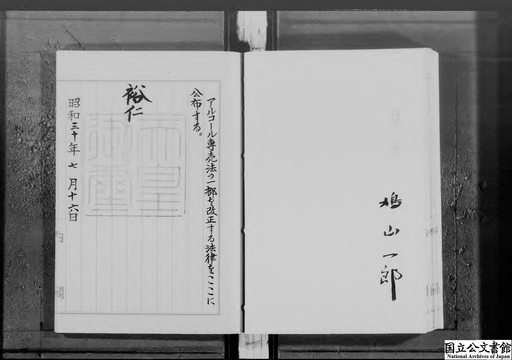 アルコール専売法の一部を改正する法律をここに
公布する。
裕仁
天皇
御璽
昭和三十年七月十六日
鳩山一郎
国立公文書館
National Archives of Japan